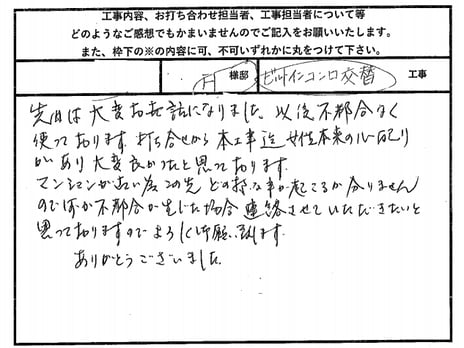 工事内容、お打ち合わせ担当者、工事担当者について等
どのようなご感想でもかまいませんのでご記入をお願いいたします。
また、枠下の※の内容に可、不可いずれかに丸をつけて下さい。
H 様邸 ビルトインコンロ交替 工事
先日は大変お世話になりました。以後不都合なく
使っております。打ち合せから本工事迄 女性本来の心配り
があり大変良かったと思っております。
マンションが古い為この先どの様な事が起こるか分りません
のでほか不都合が生じた場合連絡させていただきたいと
思っておりますのでよろしくお願い致します。
ありがとうございました。